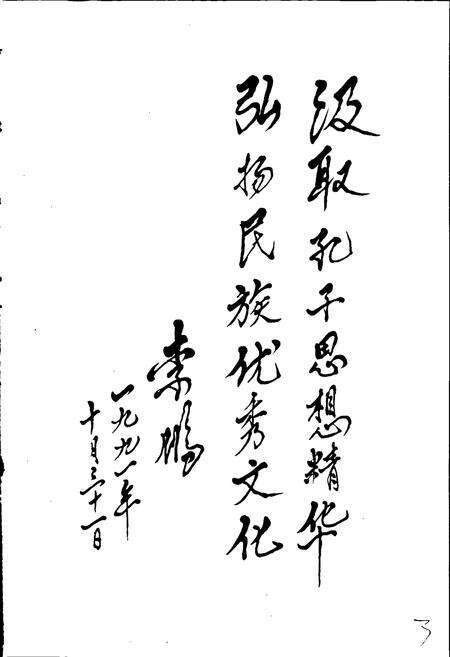 汲取孔子思想精华
弘扬民族优秀文化
李鹏
一九九一年
十月三十一日
3